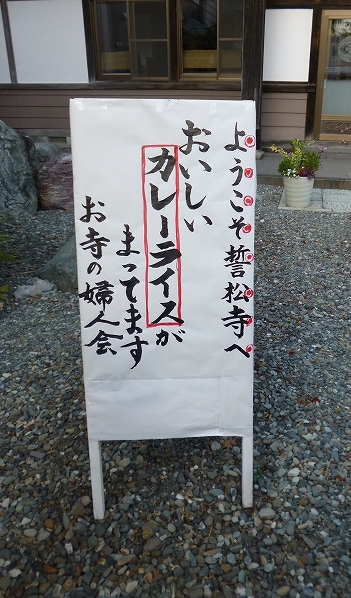 ようこそ誓松寺へ
おいしい
カレーライスが
まってます
お寺の婦人会